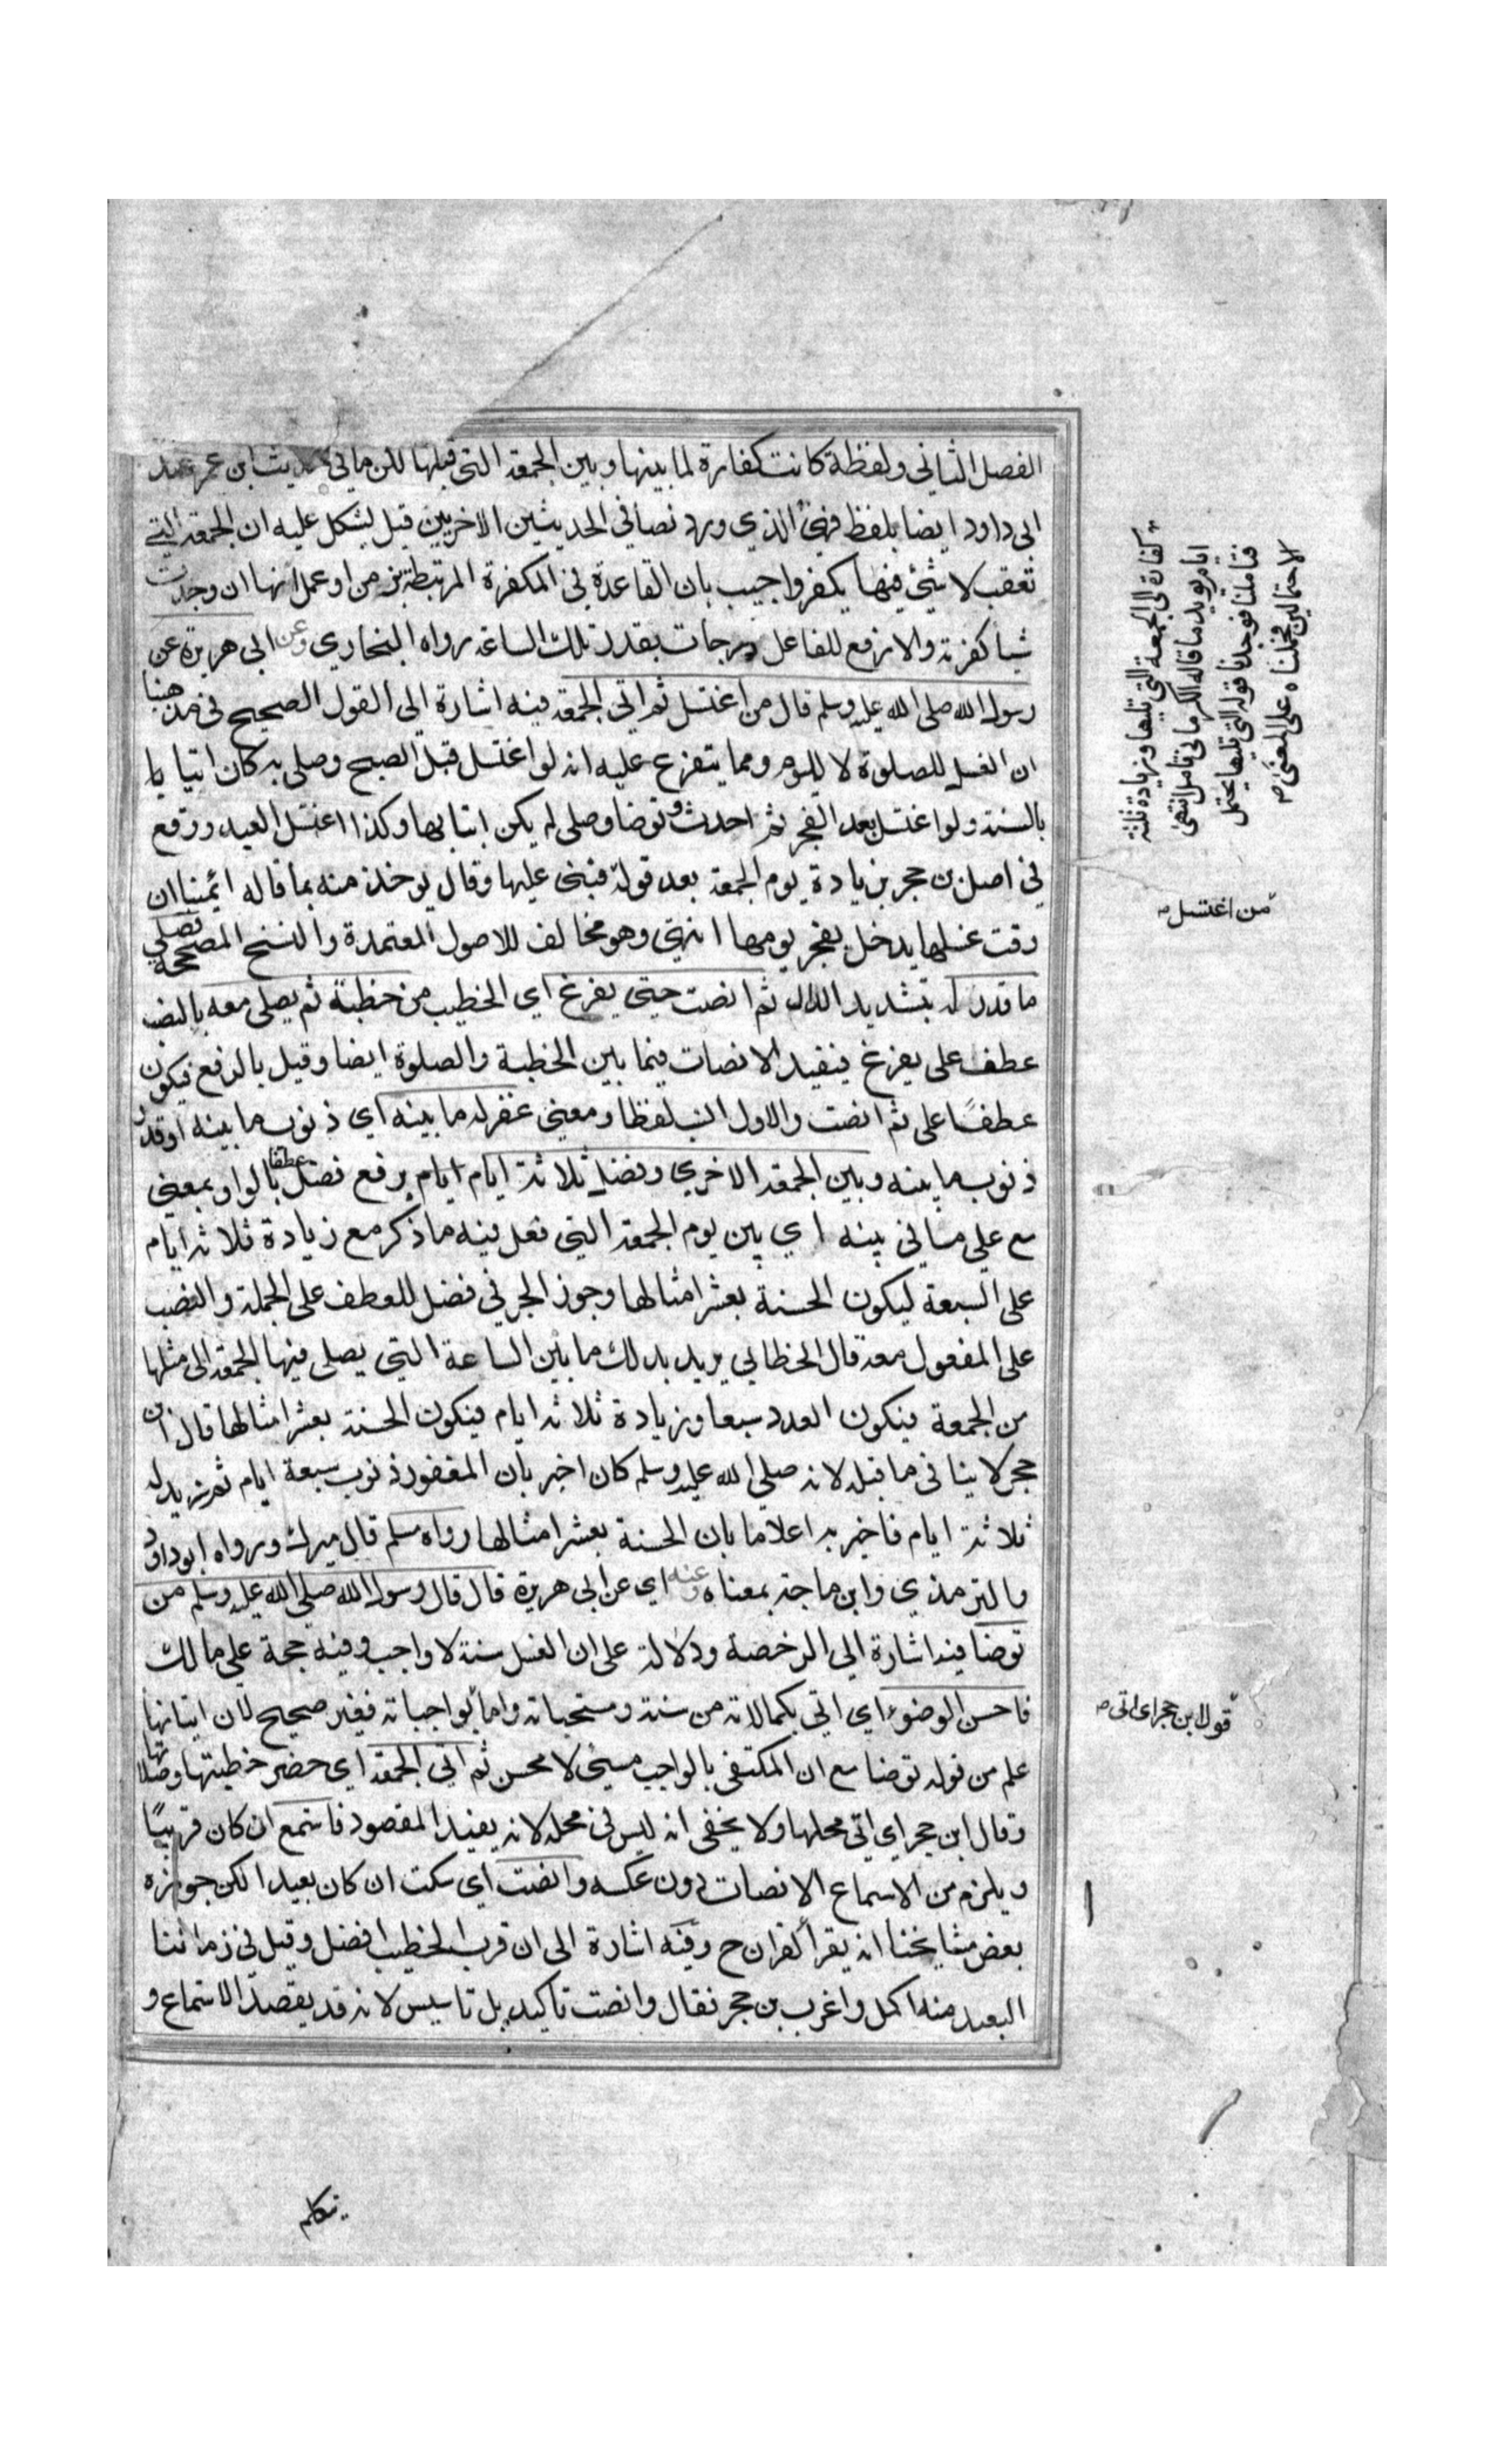 الفصل الثاني ولفظة كانت كفارة لما بينها وبين الجمعة التي قبلها لكن ما في حديث ابن عمر عند
ابي داود ايضا بلفظ فهي الذي ورد نصا في الحديثين الاخريين قيل يشكل عليه ان الجمعة التي
تعقب لا شئ فيها يكفر واجيب بان القاعدة في المكفرة المرتبطة بزمن او عمل انها ان وجدت
شيا كفرته والا رفع للفاعل درجات بقدر تلك الساعة رواه البخاري وعن ابي هريرة عن
رسول الله صلى الله عليه وسلم قال من اغتسل ثم اتي الجمعة فيه اشارة الي القول الصحيح في مذهبنا
ان الغسل للصلوة لا لليوم ومما يتفرع عليه انه لو اغتسل قبل الصبح وصلي به كان اتيا با
بالسنة ولو اغتسل بعد الفجر ثم احدث وتوضا وصلى لم يكن اتيا بها وكذا اغتسل العيد ووقع
في اصل بن حجر بزيادة يوم الجمعة بعد قوله فبنى عليها وقال يوخذ منه بما قاله ائمتنا ان
وقت غسلها يدخل بفجر يومها انتهي وهو مخالف للاصول المعتمدة والنسخ المصححة فصلي
ما قدر له بتشديد الدال ثم انصت حتي يفرغ اي الخطيب من خطبة ثم يصلى معه بالنصب
عطف على يفرغ فيفيد الانصات فيما بين الخطبة والصلوة ايضا وقيل بالرفع فيكون
عطفًا على ثم انصت والاول انسب لفظا ومعني غفر له ما بينه اي ذنوب ما بينه او قدر
ذنوب ما بينه وبين الجمعة الاخري وفضل ثلاثة ايام ايام برفع فضل عطفا بالواو بمعني
مع علي ما في بينه اي بين يوم الجمعة التي فعل فيه ما ذكر مع زيادة ثلاثة ايام
على السبعة ليكون الحسنة بعشر امثالها وجوز الجر في فضل للعطف على الجملة والنصب
على المفعول معه قال الخطابي يريد بذلك ما بين الساعة التي يصلى فيها الجمعة الى مثلها
من الجمعة فيكون العدد سبعا وزيادة ثلاثة ايام فيكون الحسنة بعشر امثالها قال ابن
حجر لا ينافى ما قبله لانه صلي الله عليه وسلم كان اخبر بان المغفور ذنوب سبعة ايام ثم زيد له
ثلاثة ايام فاخبر به اعلاما بان الحسنة بعشر امثالها رواه مسلم قال ميرك ورواه ابو داود
والترمذي وابن ماجة بمعناه وعنه اي عن ابي هريرة قال قال رسول الله صلي الله عليه وسلم من
توضا فيه اشارة الي الرخصة ودلالة على ان الغسل سنة لا واجب وفيه حجة علي مالك
فاحسن الوضوء اي اتي بكمالاته من سننه ومستحباته واما بواجباته فغير صحيح لان اتيانها
علم من قوله توضا مع ان المكتفى بالواجب مسئ لا محسن ثم اتي الجمعة اي حضر خطبتها وصلاتها
وقال ابن حجر اي اتي محلها ولا يخفى انه ليس في محله لانه يفيد المقصود فاستمع ان كان قريبًا
ويلزم من الاستماع الانصات دون عكسه وانصت اي سكت ان كان بعيدا لكن جوزه
بعض مشايخنا انه يقرا القران ح وفيه اشارة الى ان قرب الخطيب افضل وقيل في زماننا
البعيد منه اكمل واغرب بن حجر فقال وانصت تاكيد بل تاسيس لانه قد يقصد الاستماع و
كفارة الى الجمعة التي تليها وزيادة ثلثة
ايام يويد ما قاله الكرماني تامل انتهى
فتاملنا فوجدنا قوله التي تليها يحتمل
الاحتمالين فحملناه على المعنى
من اغتسل
قول ابن حجر اي اتى
يتكلم